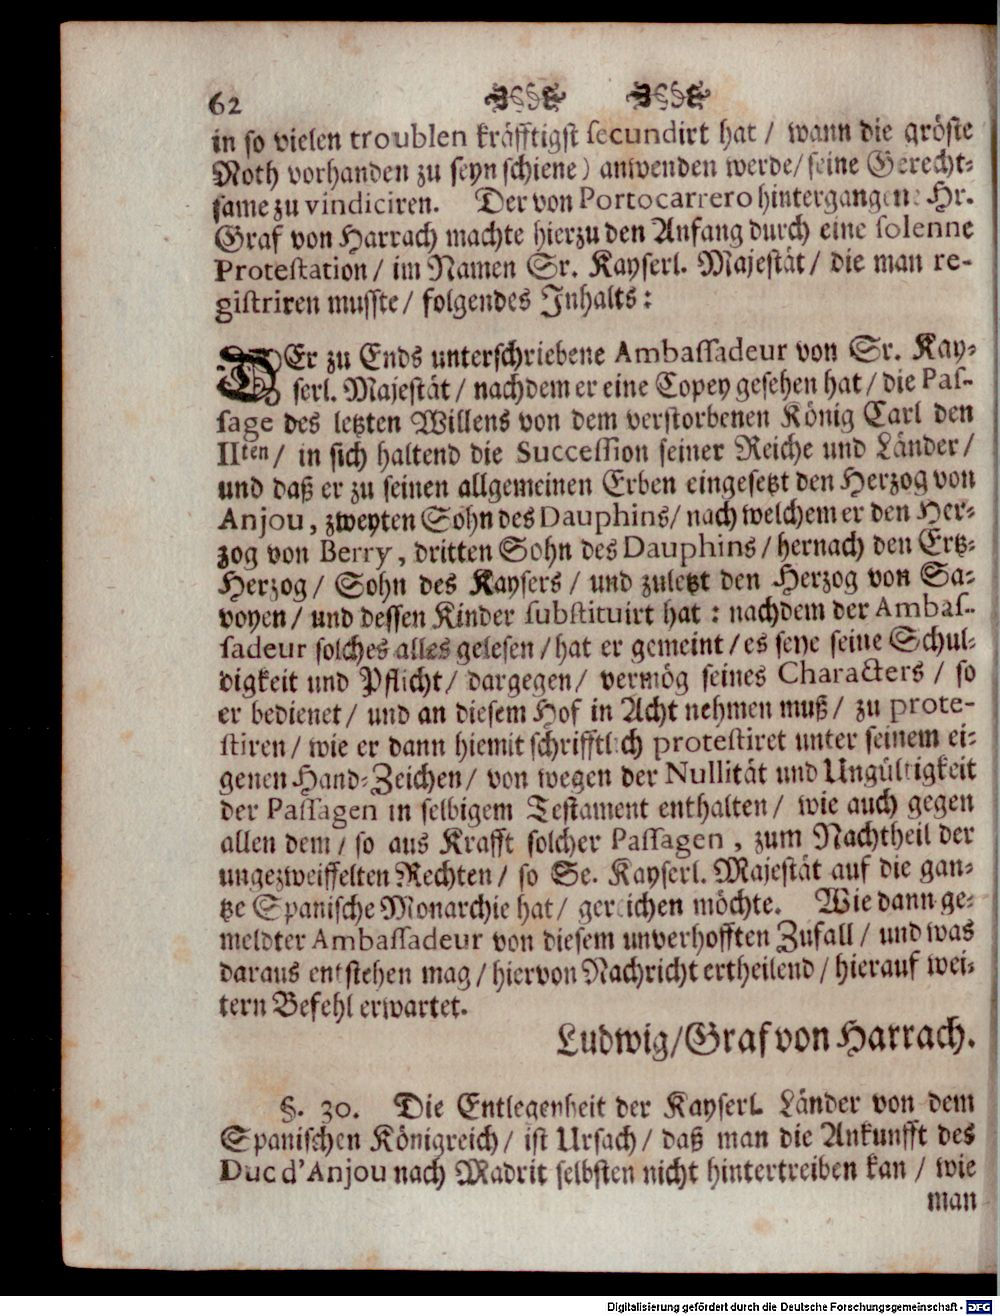 62
in so vielen troublen kräfftigst secundirt hat / wann die gröste
Noth vorhanden zu seyn schiene) anwenden werde/ seine Gerecht-
same zu vindiciren. Der von Portocarrero hintergangene Hr.
Graf von Harrach machte hierzu den Anfang durch eine solenne
Protestation / im Namen Sr. Kayserl. Majestät / die man re-
gistriren musste / folgendes Inhalts:
DEr zu Ends unterschriebene Ambassadeur von Sr. Kay-
serl. Majestät / nachdem er eine Copey gesehen hat / die Pas-
sage des letzten Willens von dem verstorbenen König Carl den
IIten / in sich haltend die Succession seiner Reiche und Länder /
und daß er zu seinen allgemeinen Erben eingesetzt den Herzog von
Anjou, zweyten Sohn des Dauphins / nach welchem er den Her-
zog von Berry, dritten Sohn des Dauphins / hernach den Ertz-
Herzog / Sohn des Kaysers / und zuletzt den Herzog von Sa-
voyen / und dessen Kinder substituirt hat : nachdem der Ambas-
sadeur solches alles gelesen / hat er gemeint / es seye seine Schul-
digkeit und Pflicht / dargegen / vermög seines Characters / so
er bedienet / und an diesem Hof in Acht nehmen muß / zu prote-
stiren / wie er dann hiemit schrifftlich protestiret unter seinem ei-
genen Hand-Zeichen / von wegen der Nullität und Ungültigkeit
der Passagen in selbigem Testament enthalten / wie auch gegen
allen dem / so aus Krafft solcher Passagen, zum Nachtheil der
ungezweiffelten Rechten / so Se. Kayserl. Majestät auf die gan-
tze Spanische Monarchie hat / gereichen möchte. Wie dann ge-
meldter Ambassadeur von diesem unverhofften Zufall / und was
daraus entstehen mag / hiervon Nachricht ertheilend / hierauf wei-
tern Befehl erwartet.
Ludwig / Graf von Harrach.
§. 30. Die Entlegenheit der Kayserl. Länder von dem
Spanischen Königreich / ist Ursach / daß man die Ankunfft des
Duc d'Anjou nach Madrit selbsten nicht hintertreiben kan / wie
man
Digitalisierung gefördert durch die Deutsche Forschungsgemeinschaft - DFG